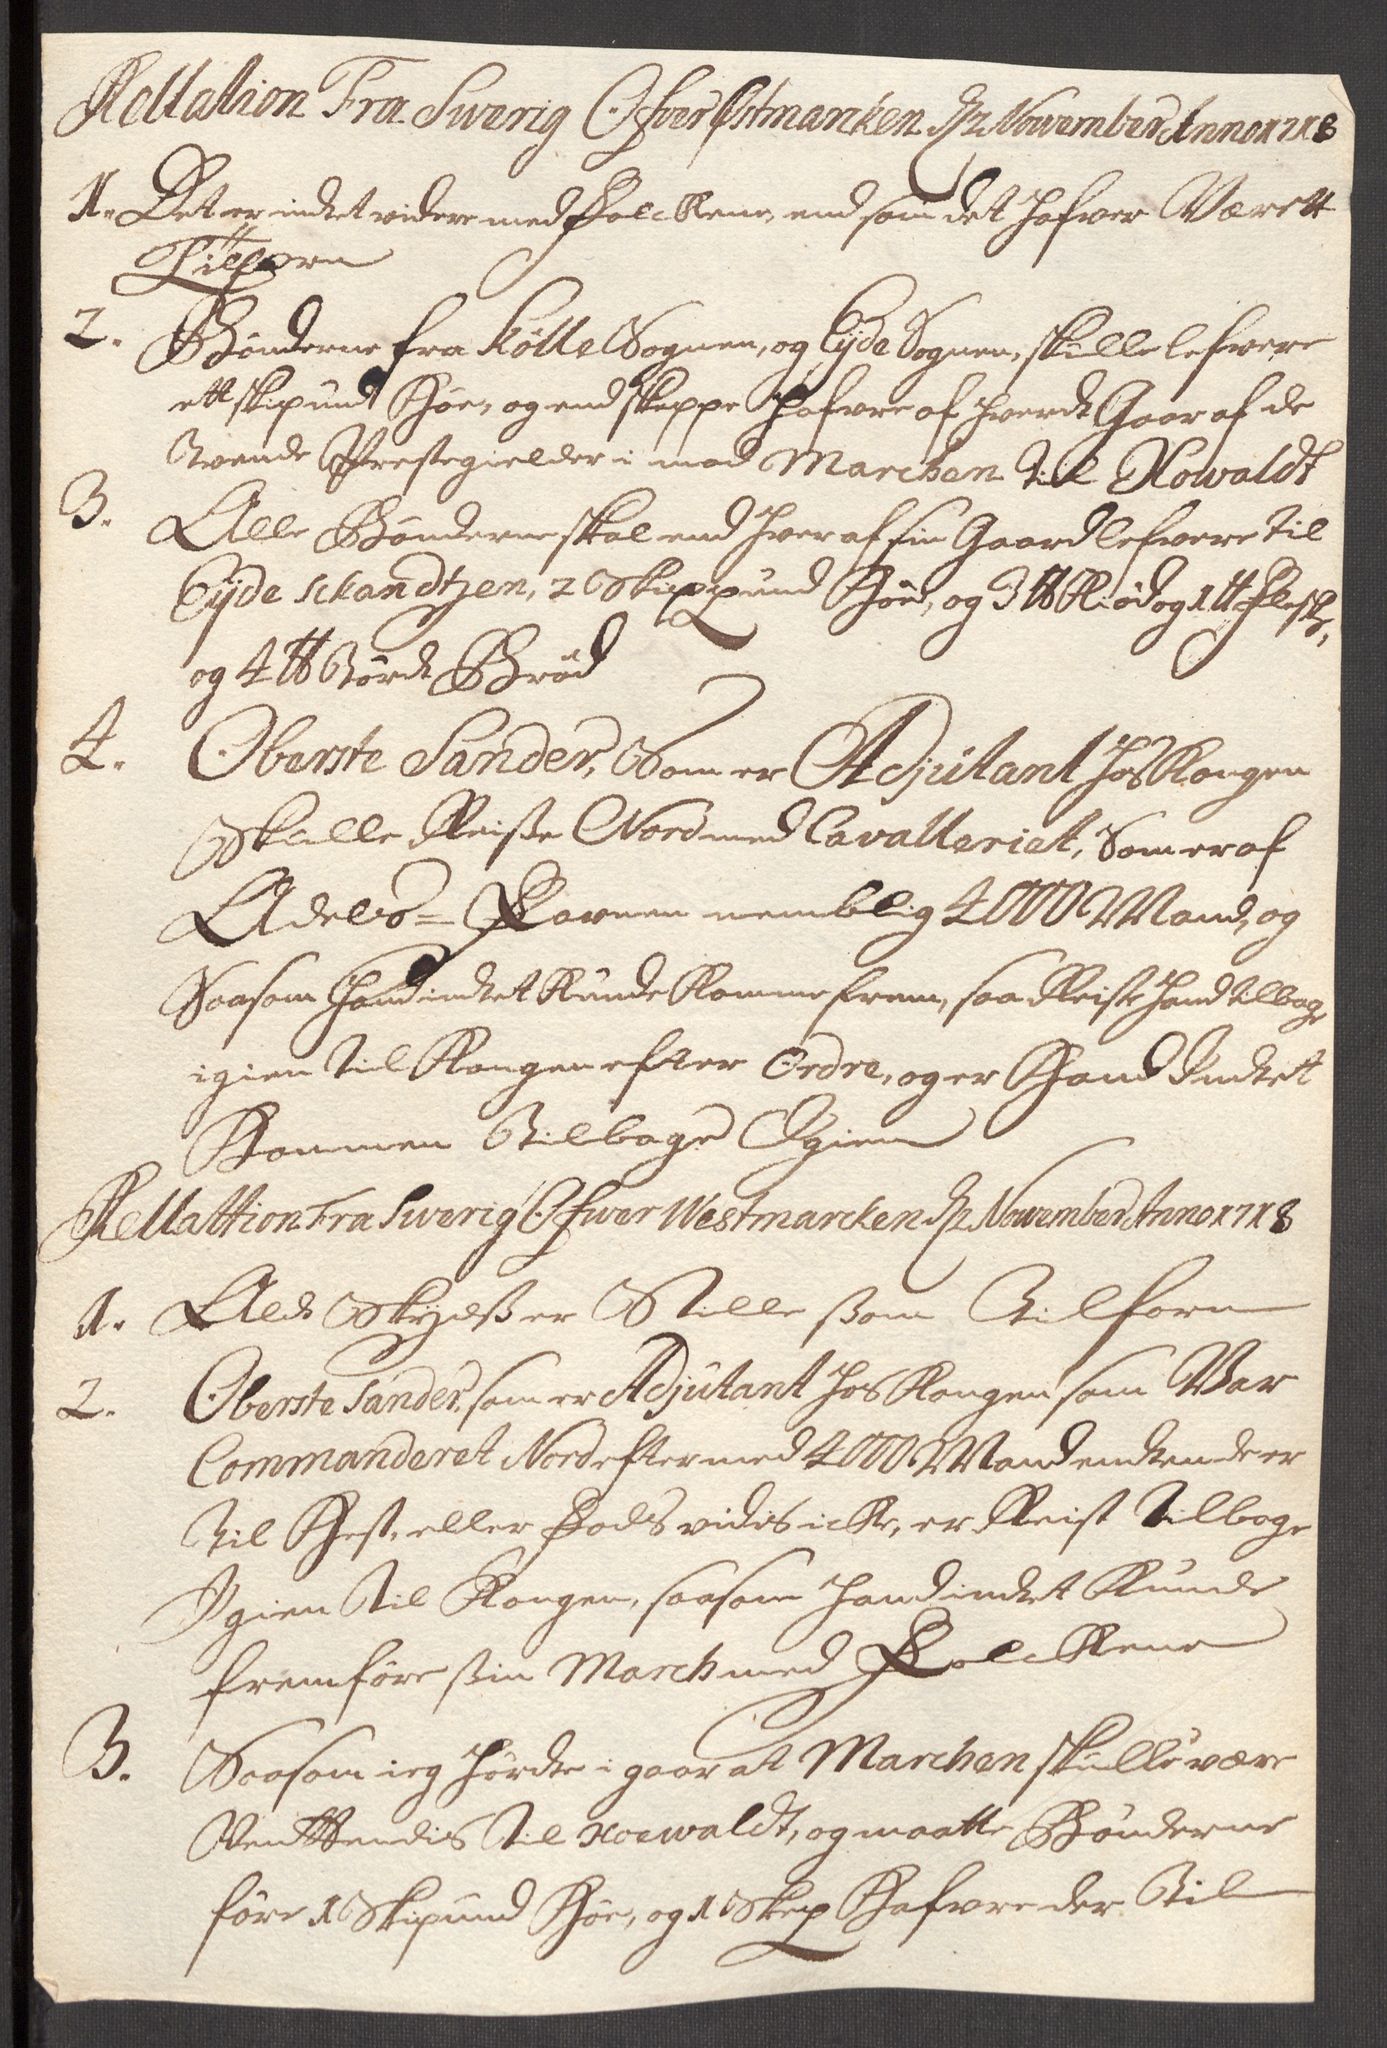 Rellattion Fra Swerig Ofver Østmarcken D 12 November Anno 1718
1. Det er indtet videre med Folckene, end som det hafver Værett
Tilforn
2. Bønderne fra Kølle Sognen, og Eyde Sognen, skulle lefvere
ett skipund Høe, og end skeppe hafvre af hverdt Gaar af de
tvende Prestegielder i mod Marchen til Howaldt
3. Alle Bønderne skal end hver af sin Gaard lefvere til
Eyde schandtzen, 2 Skippund Høe, og 3 ℔ Kiød og 1 ℔ Flesk,
og 4 ℔ tørdt Brød
4. Oberste Sander, Som er Adjutant hos Kongen
Skulle Reisse Nord med Cavalleriet, Som er af
Adels-Favnen nemblig 4000 Mand, og
Saasom hand indtet Kunde Komme frem, saa Reiste hand tilbage
igien til Kongen efter Ordre, og er Hand Indtet
Kommen tilbage Igien
Rellattion Fra Swerig Ofwer Westmarcken D 12 November Anno 1718
1. Aldt Skydss er Stille ssom tilforn
2. Oberste Sander, som er Adjutant hos Kongen som Var
Commanderet Nord efter med 4000 Mand endten de er
til Hest, eller Fods vides icke, er Reist tilbage
Igien til Kongen, saasom hand indtet Kunde
fremføre ssin March med Folckene
3. Saasom ieg hørdte i gaar at Marchen skulle være
Venttendis til Howaldt, og maatte Bønderne
føre 1 Skipund Høe, og 1 Skep Hafvre der til